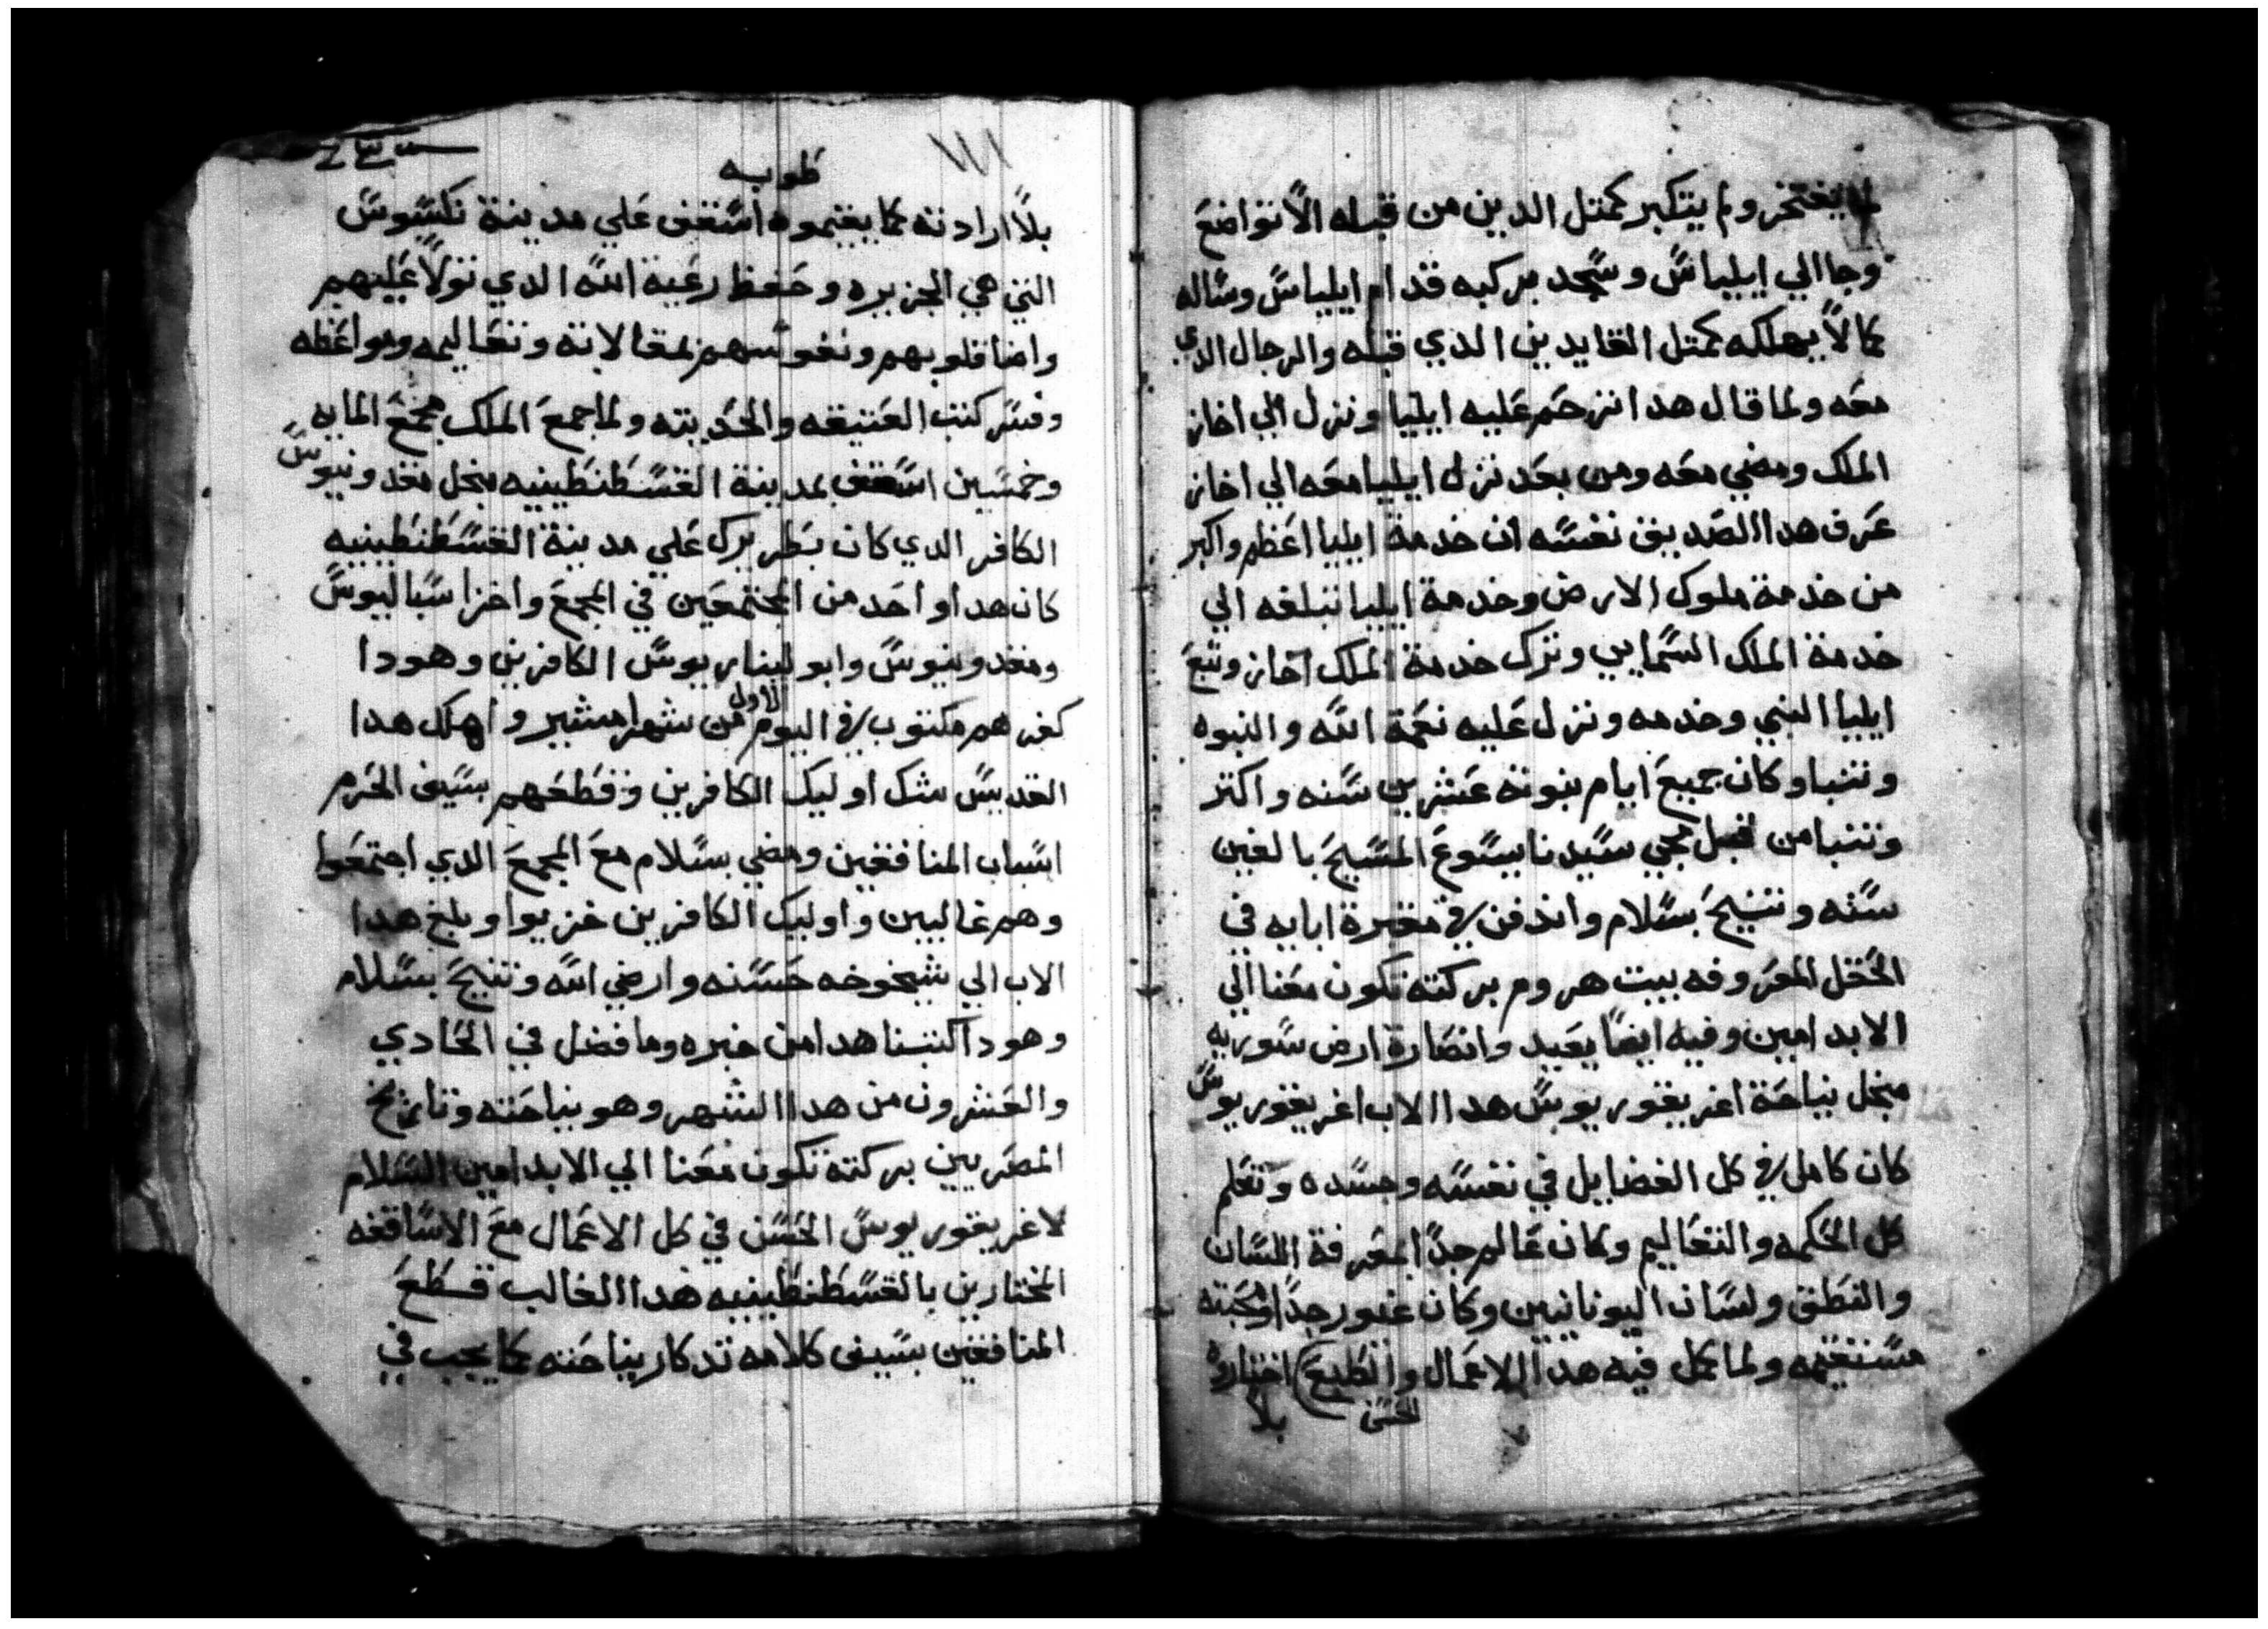 لما يفتخر ولم يتكبر كمتل الدين من قبله الا تواضع
وجا الي ايلياس وسجد بركبه قدام ايلياس وساله
كما لا يهلكه كمتل القايدين الدي قبله والرجال الدي
معه ولما قال هدا ترحم عليه ايليا ونزل الي اخاز
الملك ومضي معه ومن بعد نزل ايليا معه الي اخاز
عرف هدا الصديق نفسه ان خدمة ايليا اعظم واكبر
من خدمة ملوك الارض وخدمة ايليا تبلغه الي
خدمة الملك السمايي وترك خدمة الملك اخاز وتبع
ايليا النبي وخدمه ونزل عليه نعمة الله والنبوه
وتنبا وكان جميع ايام نبوته عشرين سنه واكتر
وتنبا من قبل مجي سيدنا يسوع المسيح بالفين
سنه وتنيح بسلام واندفن في مقبرة ابايه في
الحقل المعروفه بيت هروم بركته تكون معنا الي
الابد امين وفيه ايضا يعيد وانصارة ارض سوريه
مبخل نياحة اغريغوريوس هدا الاب اغريغوريوس
كان كامل في كل الفضايل في نفسه وجسده وتعلم
كل الحكمه والتعاليم وكان عالم جدا لمعرفة اللسان
والنطق ولسان اليونانيين وكان غيور جدا ومحبته
مستقيمه ولما كمل فيه هدا الاعمال والطبع اختاروه
الحسن
بلا
١١١
طوبه
بلا ارادته كما يقيموه اسقف علي مدينة نكسوس
التي هي الجزيره وحفظ رعية الله الدي تولا عليهم
واضا قلوبهم ونفوسهم بمقالاته وتعاليمه ومواعظه
وفسر كتب العتيقه والحديته ولما جمع الملك مجمع المايه
وخمسين اسقف بمدينة القسطنطينيه مبخل مقدونيوس
الكافر الدي كان بطريرك علي مدينة القسطنطينيه
كان هدا واحد من المجتمعين في المجمع واخزا سباليوس
ومقدونيوس وابوليناريوس الكافرين وهودا
كفرهم مكتوب في اليوم الاول من شهر امشير واهلك هدا
القديس شك اوليك الكافرين وقطعهم بسيف الحرم
اسباب المنافقين ومضي بسلام مع المجمع الدي اجتمعوا
وهم غالبين واوليك الكافرين خزيوا وبلغ هدا
الاب الي شيخوخه حسنه وارضي الله وتنيح بسلام
وهودا كتبنا هدا من خبره وما فضل في الحادي
والعشرون من هدا الشهر وهو بنياحته وتاريخ
المصريين بركته تكون معنا الي الابد امين السلام
لاغريغوريوس الحسن في كل الاعمال مع الاساقفه
المختارين بالقسطنطينيه هدا الغالب قطع
المنافقين بسيف كلامه تدكار بنياحته كما يجب في